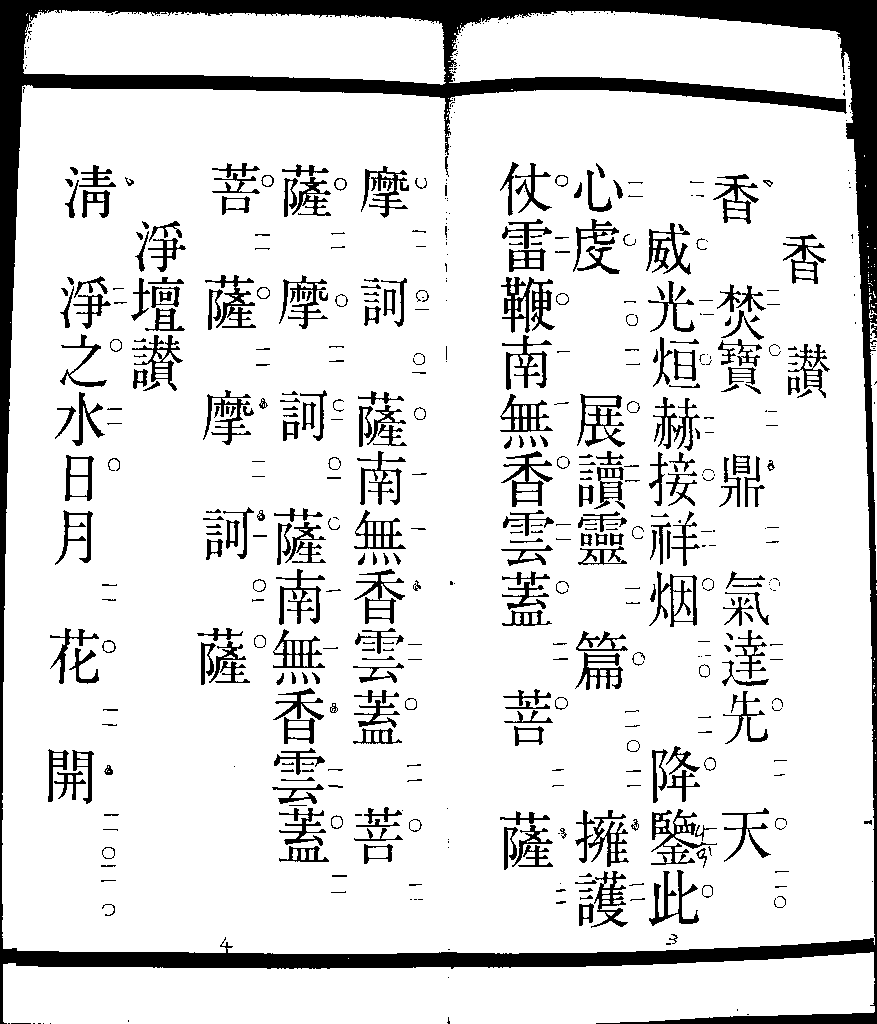 香讚
香焚寶鼎氣達先天
威光烜赫接祥烟降鑒此
心虔展讀靈篇擁護
仗雷鞭南無香雲蓋菩薩
3
摩訶薩南無香雲蓋菩
薩摩訶薩南無香雲蓋
菩薩摩訶薩
淨壇讚
清淨之水日月花開
4